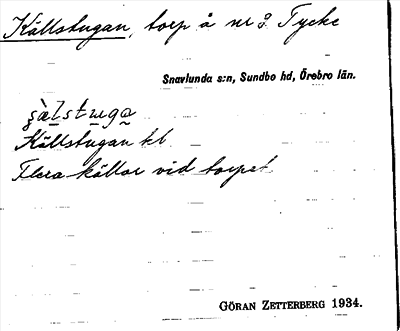 Källstugan, torp å nr 3 Tycke
Snavlunda s:n, Sundbo hd, Örebro län.
Källstugan kl.
Flera källor vid torpet
GÖRAN ZETTERBERG 1934.